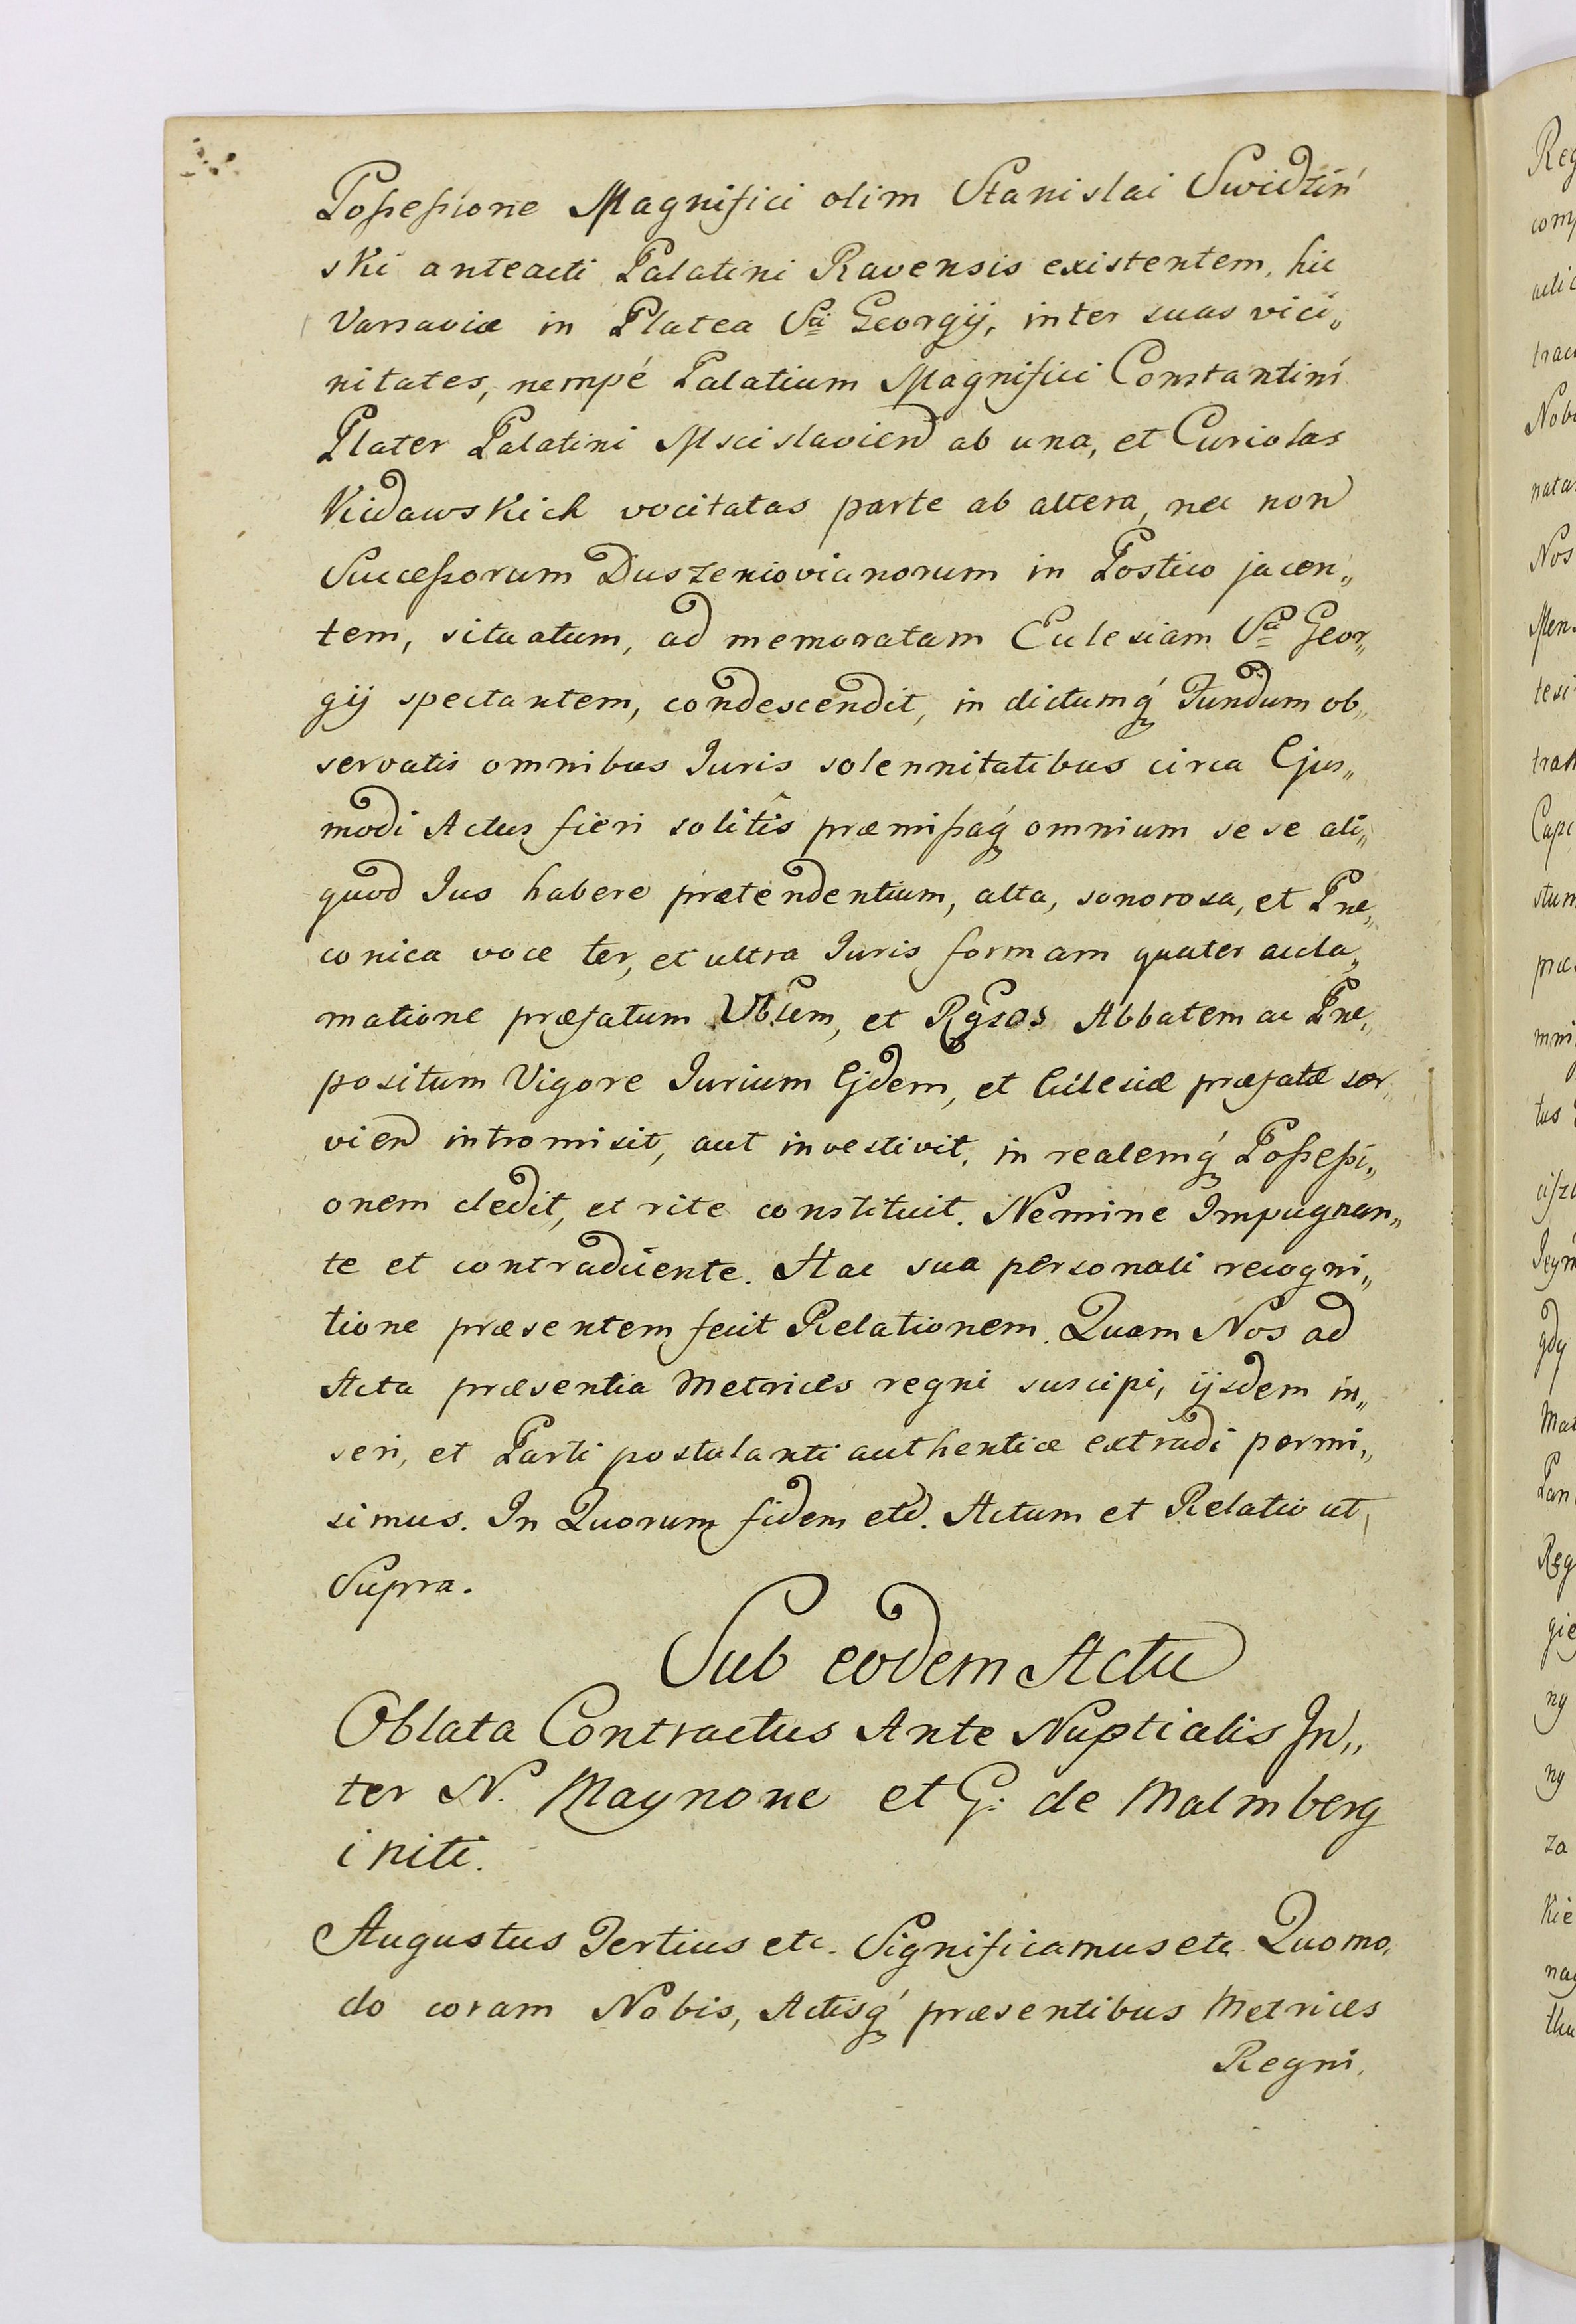 Possessione Magnifici olim Stanislai Swidziń
ski anteacti Palatini Ravensis existentem, hic
Varsaviæ in Platea Sti Georgij, inter suas vici„
nitates, nempé Palatium Magnifici Constantini
Plater Palatini Mscislavien ab una, et Curiolas
Kidawskich vocitatas parte ab altera, nec non
Successorum Duszeniovianorum in Postico jacen„
tem, situatum, ad memoratam Ecclesiam Sti Geor„
gij spectantem, condescendit, in dictumq́ Fundum ob„
servatis omnibus Juris solennitatibus circa Ejus„
modi Actus fieri solitîs præmissaq́ omnium sese ali„
quod Jus habere prætendentium, alta, sonorosa, et Præ„
conica voce ter, et ultra Juris formam quater accla„
matione præfatum Vblem, et Rgsos Abbatem ac Præ„
positum Vigore Jurium Ejdem, et Ecclesiæ præfatæ ser„
vien intromisit, aut investivit, in realemq́ Possessi„
onem dedit, et rite constituit. Nemine Impugnan„
te et contradicente. Hac sua personali recogni„
tione præsentem fecit Relationem. Quam Nos ad
Acta præsentia Metrices regni suscipi, ijsdem in„
seri, et Parti postulanti authenticæ extradi permi„
simus. In Quorum fidem etc. Actum et Relatio ut
Supra.
Sub eodem Actu
Oblata Contractus Ante Nuptialis In„
ter N. Maynone et G: de Malmberg
initi.
Augustus Tertius etc. Significamus etc. Quomo„
do coram Nobis, Actisq́ præsentibus Metrices
Regni.